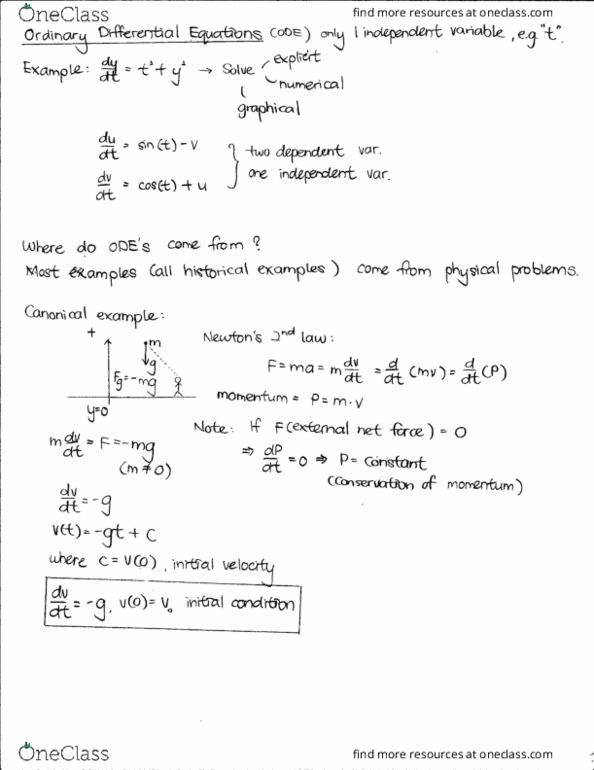 OneClass
find more resources at oneclass.com
Ordinary Differential Equations (ODE) only 1 independent variable, e.g "t".
Example: dy/dt = t² + y² → Solve
explicit
numerical
graphical
du/dt = sin(t) - v
dv/dt = cos(t) + u
two dependent var.
one independent var.
Where do ODE's come from?
Most examples (all historical examples) come from physical problems.
Canonical example:
+
m
g
Fg = -mg
y=0
Newton's 2nd law:
F = ma = m dv/dt = d/dt (mv) = d/dt (P)
momentum = P = m·v
Note: If F(external net force) = 0
⇒ dP/dt = 0 ⇒ P = constant
(conservation of momentum)
m dv/dt = F = -mg
(m ≠ 0)
dv/dt = -g
v(t) = -gt + c
where c = v(0), initial velocity
dv/dt = -g, v(0) = v₀ initial condition
OneClass
find more resources at oneclass.com